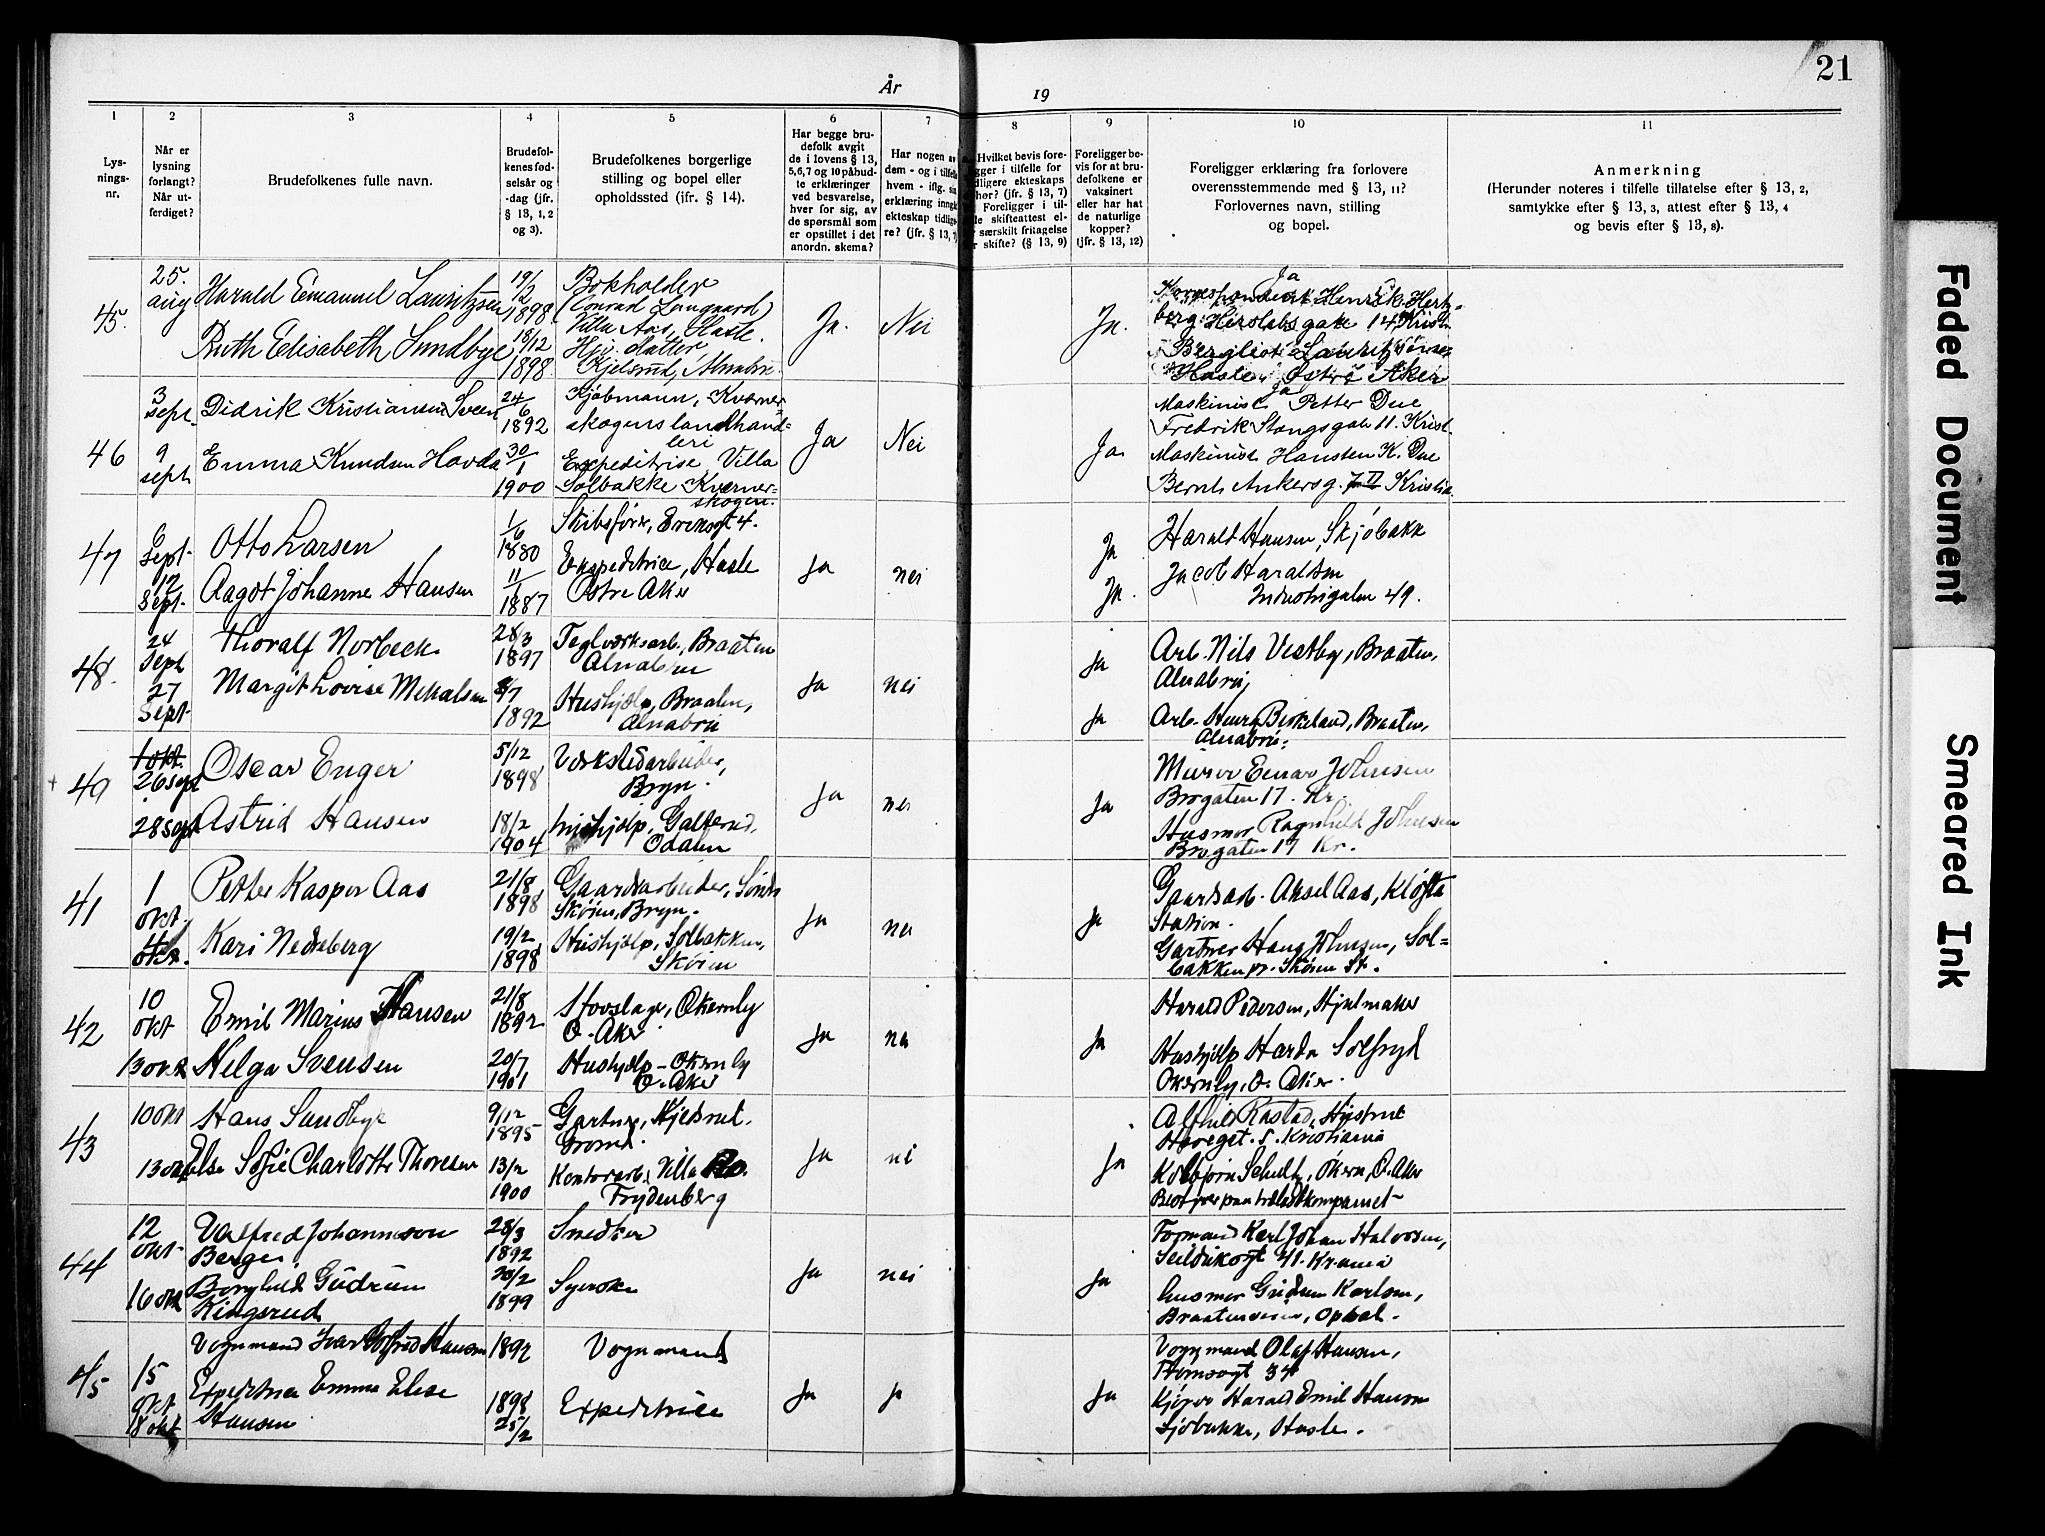 21
År
19
1
2
3
4
5
6
7
8
9
10
11
Lys-
nings-
nr.
Når er
lysning
forlangt?
Når ut-
ferdiget?
Brudefolkenes fulle navn.
Brudefol-
kenes fød-
selsår og
-dag (jfr.
§ 13, 1, 2
og 3).
Brudefolkenes borgerlige
stilling og bopel eller
opholdssted (jfr. § 14).
Har begge bru-
defolk avgit
de i lovens § 13,
5,6,7 og 10 påbud-
te erklæringer
ved besvarelse,
hver for sig, av
de spørsmål som
er opstillet i det
anordn. skema?
Har nogen av
dem - og i tilfelle
hvem - iflg. sin
erklæring inngå
ekteskap tidlige-
re? (jfr. § 13, 7)
Hvilket bevis fore-
gger i tilfelle for
dligere ekteskaps
hør? (jfr. § 13, 7)
Foreligger i til-
le skifteattest el-
særskilt fritagelse
skifte? (§ 13, 9)
Foreligger be-
vis for at bru-
defolkene er
vaksinert
eller har hat
de naturlige
kopper?
(jfr. § 13, 12)
Foreligger erklæring fra forlovere
overensstemmende med § 13, 11?
Forlovernes navn, stilling
og bopel.
Anmerkning
(Herunder noteres i tilfelle tillatelse efter § 13, 2,
samtykke efter § 13, 3, attest efter § 13, 4
og bevis efter § 13, 8).
45.
25.
aug
Harald Emanuel Lauritzsen
19/2
1898
Bokholder
(Conrad Langaard)
Villa Aas, Hasle.
Ruth Elisabeth Sundbye
18/12
1898
Hj. datter,
Kjelsrud, Alnabru
Ja.
Nei
Ja.
Ja
Korrespondent Henrik Hertz-
berg. Herslebs gate 14 Krist.
Bergliot Lauritzsen
Hasle, Østre Aker
46
3
sept.
9
sept
Didrik Kristiansen Sveen
24/6
1892
Kjøbmann, Kværner-
skogens landhand-
leri
Emma Knudsen Hovda
30/1
1900
Expeditrise Villa
Solbakke Kværner-
skogen.
Ja
Nei
Ja
Ja
Maskinist Petter Due
Fredrik Stangsgate 11. Krist.
Maskinist Hansten K. Due
Bernt Ankersg. 7 II Kristia
47
6
Sept.
12
Sept.
Otto Larsen
1/6
1880
Skibsfører,
4.
Aagot Johanne Hansen
11/1
1887
Expeditrice, Hasle
Østre Aker
Ja
nei
Ja
Ja.
Harald Hansen, Skjöbakk
Jacob Haraldsen
Industrigaten 49.
48.
24
Sept
27
Sept.
Thoralf Norbeck
28/3
1897
Teglverksarb., Braaten
Alnabru
Margit Lovise Mikalsen
8/7
1892
Hushjælp, Braaten,
Alnabru
Ja
nei
Ja
Ja
Arb. Nils Vestby, Braaten,
Alnabru,
Arb. Henry Birkeland, Braaten,
Alnabru.
49
1 okt.
26 sept
28 sept
Oscar Enger
5/12
1898
Verkstedarbeider,
Bryn.
Astrid Hansen
18/2
1904
hushjelp, Galterud,
Odalen
Ja
nei
Ja
Murer Einar Johnsen
Brogaten 17. Kr.
Husmor Ragnhild Johnsen
Brogaten 17 Kr.
41
1
okt.
okt.
Petter Kasper Aas
21/8
1898
Gaardsarbeider, Søndre
Skøien, Bryn.
Kari Nedreberg
19/2
1898
Hushjælp, Solbakken,
Skøien
Ja
nei
Ja
Gaardsarb. Aksel Aas, Kløfta
Station.
Gartner Haug Johnsen, Sol-
bakken pr. Skøien St.
42
10
okt
13 okt
Emil Marius Hansen
21/8
1892
Økernby
Ø. Aker
Helga Svensen
20/7
1901
Hushjælp - Økernby
Ø. Aker
Ja
nei
Ja
Harald Pedersen, Hjulmaker
Hushjælp Harda Solfryd
Økernby, Ø. Aker.
43
10 okt
13 okt
Hans Sundbye
9/12
1895
Gartner, Kjelsrud,
Grorud.
Else Sofie Charlotte Thoresen
13/2
1900
Kontorarb. Villa Ro.
Frydenberg
Ja
nei
Ja
Alfhild Rastad, Hustru
Havegat. 5. Kristiania
Kolbjørn Schultz, Økern, Ø. Aker
44
12
okt.
16 okt
Valfred Johannson
Berger
28/3
1892
Snedker
Borghild Gudrun
Ringerud
20/2
1899
Syerske
Ja
nei
Ja
Formand Karl Johan Halvorsen,
Seilduksgt 41. Kr.ania
husmor Gudrun Karlsen,
Braatenveien, Opsal.
45
15
okt
18 okt
Vognmand Ivar Hansen
1892
Vognmand
Expeditrice Emma Elise
Hansen
1898
25/2
Expeditrice
Ja
ja
Ja
Vognmand Olaf Hansen,
Tromsøgt 34
Kjører Harald Emil Hansen
Sjöbakke, Hasle.
Faded Document
Smeared Ink